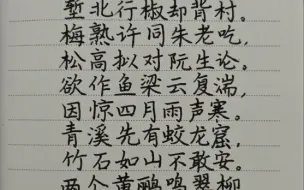 堑北行椒却背村。
梅熟许同朱老吃，
松高拟对阮生论。
欲作鱼梁云复湍，
因惊四月雨声寒。
青溪先有蛟龙窟，
竹石如山不敢安。
两个黄鹂鸣翠柳